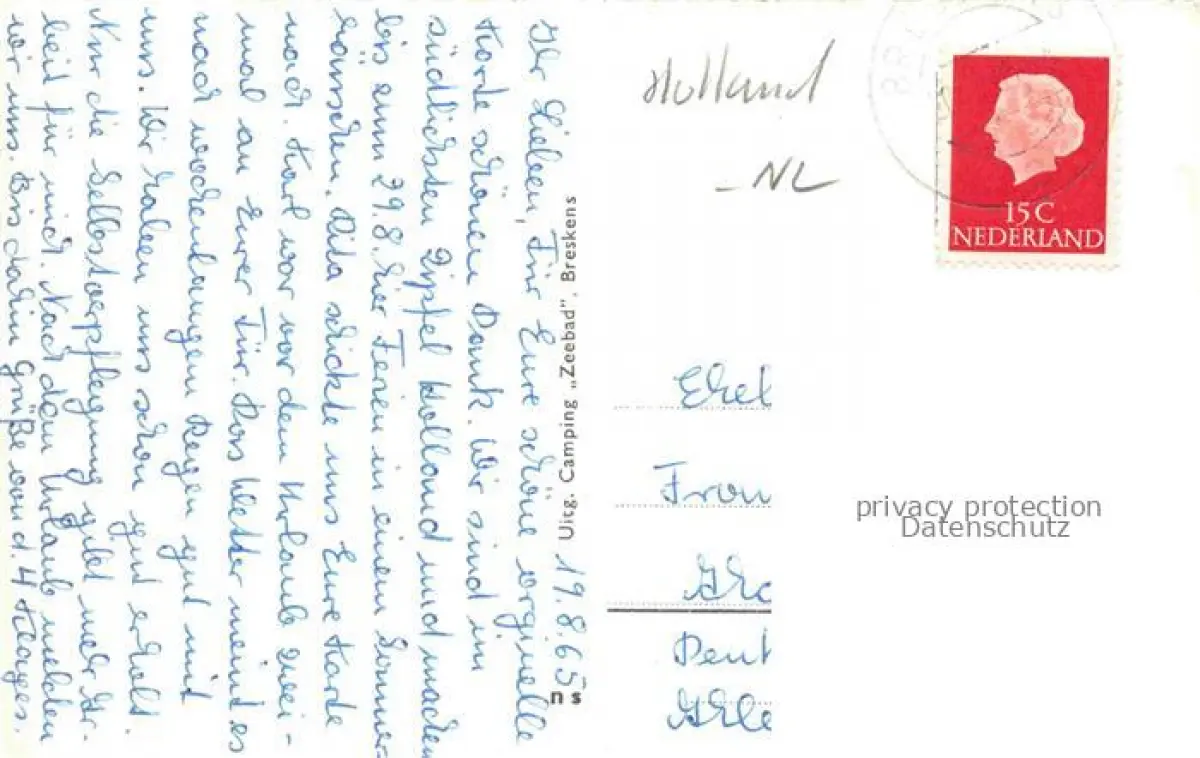 19.8.65
Ihr Lieben, Für Eure schöne orginelle
Karte schönen Dank. Wir sind im
südlichsten Zipfel Holland und machen
bis zum 29.8. hier Ferien in einem Sommer-
häuschen. Rita schickte uns Eure Karte
nach. Karl war vor dem Urlaub zwei-
mal an Eurer Tür. Das Wetter meint es
nach wochenlangem Regen gut mit
uns. Wir haben uns schon gut erholt.
Nur die Selbstverpflegung gibt mehr Ar-
beit für mich. Nach dem Urlaub melden
wir uns. Bis dahin Grüße von d. H
Uitg. Camping „Zeebad", Breskens
ns
Holland
- NL
15 C
NEDERLAND
Ehel
Frau
privacy protection
Datenschutz